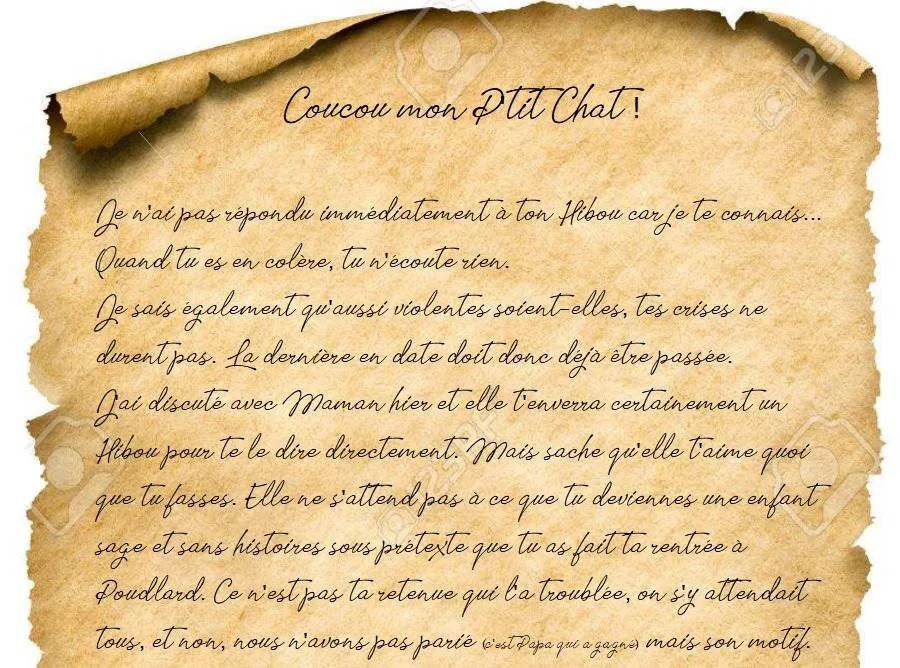 Coucou mon P'tit Chat !
Je n'ai pas répondu immédiatement à ton Hibou car je te connais...
Quand tu es en colère, tu n'écoute rien.
Je sais également qu'aussi violentes soient-elles, tes crises ne
durent pas. La dernière en date doit donc déjà être passée.
J'ai discuté avec Maman hier et elle t'enverra certainement un
Hibou pour te le dire directement. Mais sache qu'elle t'aime quoi
que tu fasses. Elle ne s'attend pas à ce que tu deviennes une enfant
sage et sans histoires sous prétexte que tu as fait ta rentrée à
Poudlard. Ce n'est pas ta retenue qui l'a troublée, on s'y attendait
tous, et non, nous n'avons pas parié (c'est Papa qui a gagné) mais son motif.